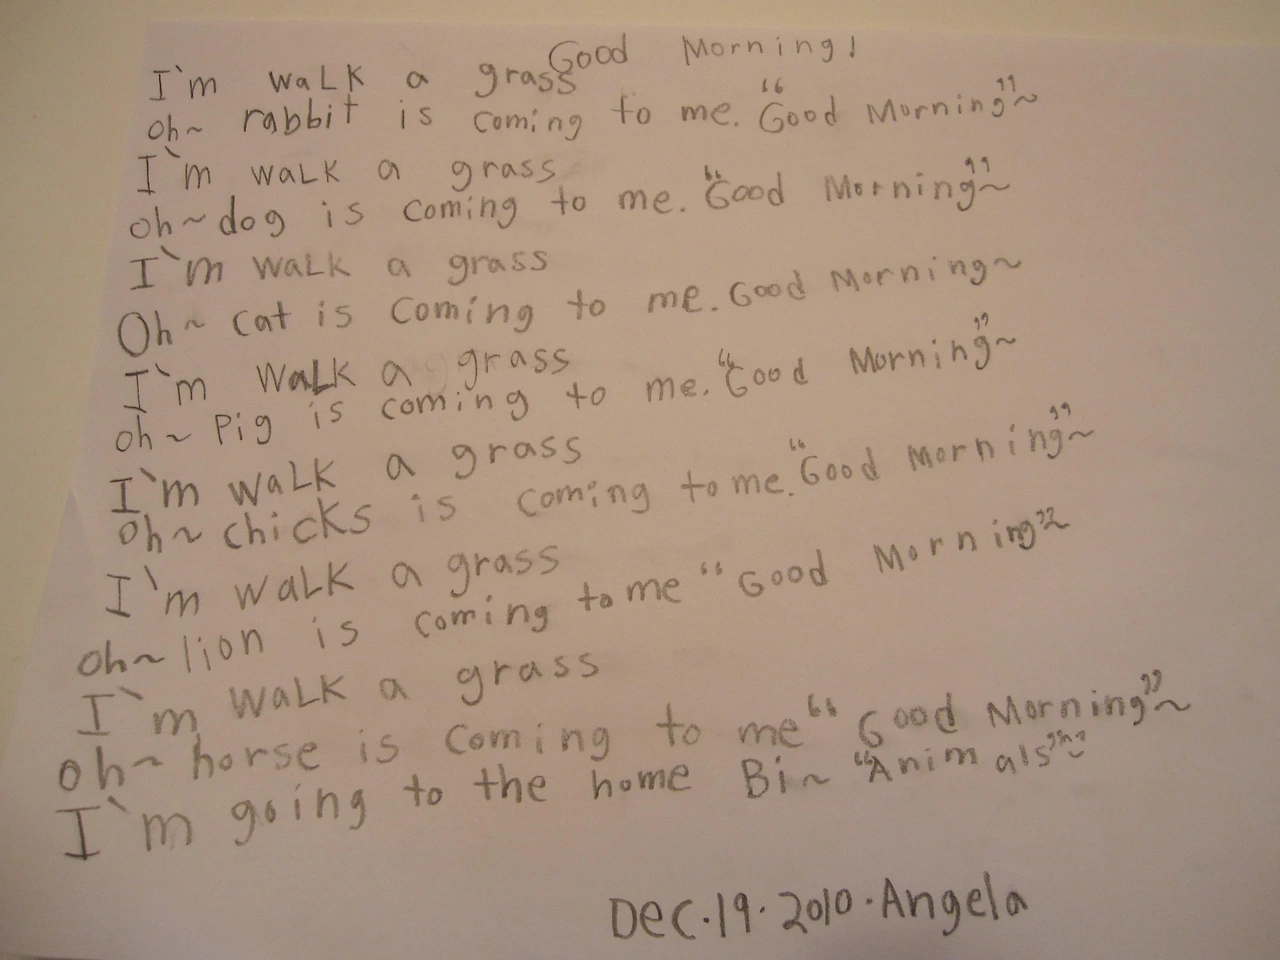 Good Morning!
I`m walk a grass
oh~ rabbit is coming to me. "Good Morning"~
I`m walk a grass
oh~dog is coming to me. "Good Morning"~
I`m walk a grass
Oh~ cat is coming to me. Good Morning~
I`m walk a grass
oh~ Pig is coming to me. "Good Morning"~
I`m walk a grass
oh~ chicks is coming to me. "Good Morning"~
I`m walk a grass
oh~ lion is coming to me "Good Morning"~
I`m walk a grass
oh~ horse is coming to me "Good Morning"~
I`m going to the home Bi~ "Animals"~
Dec.19.2010.Angela